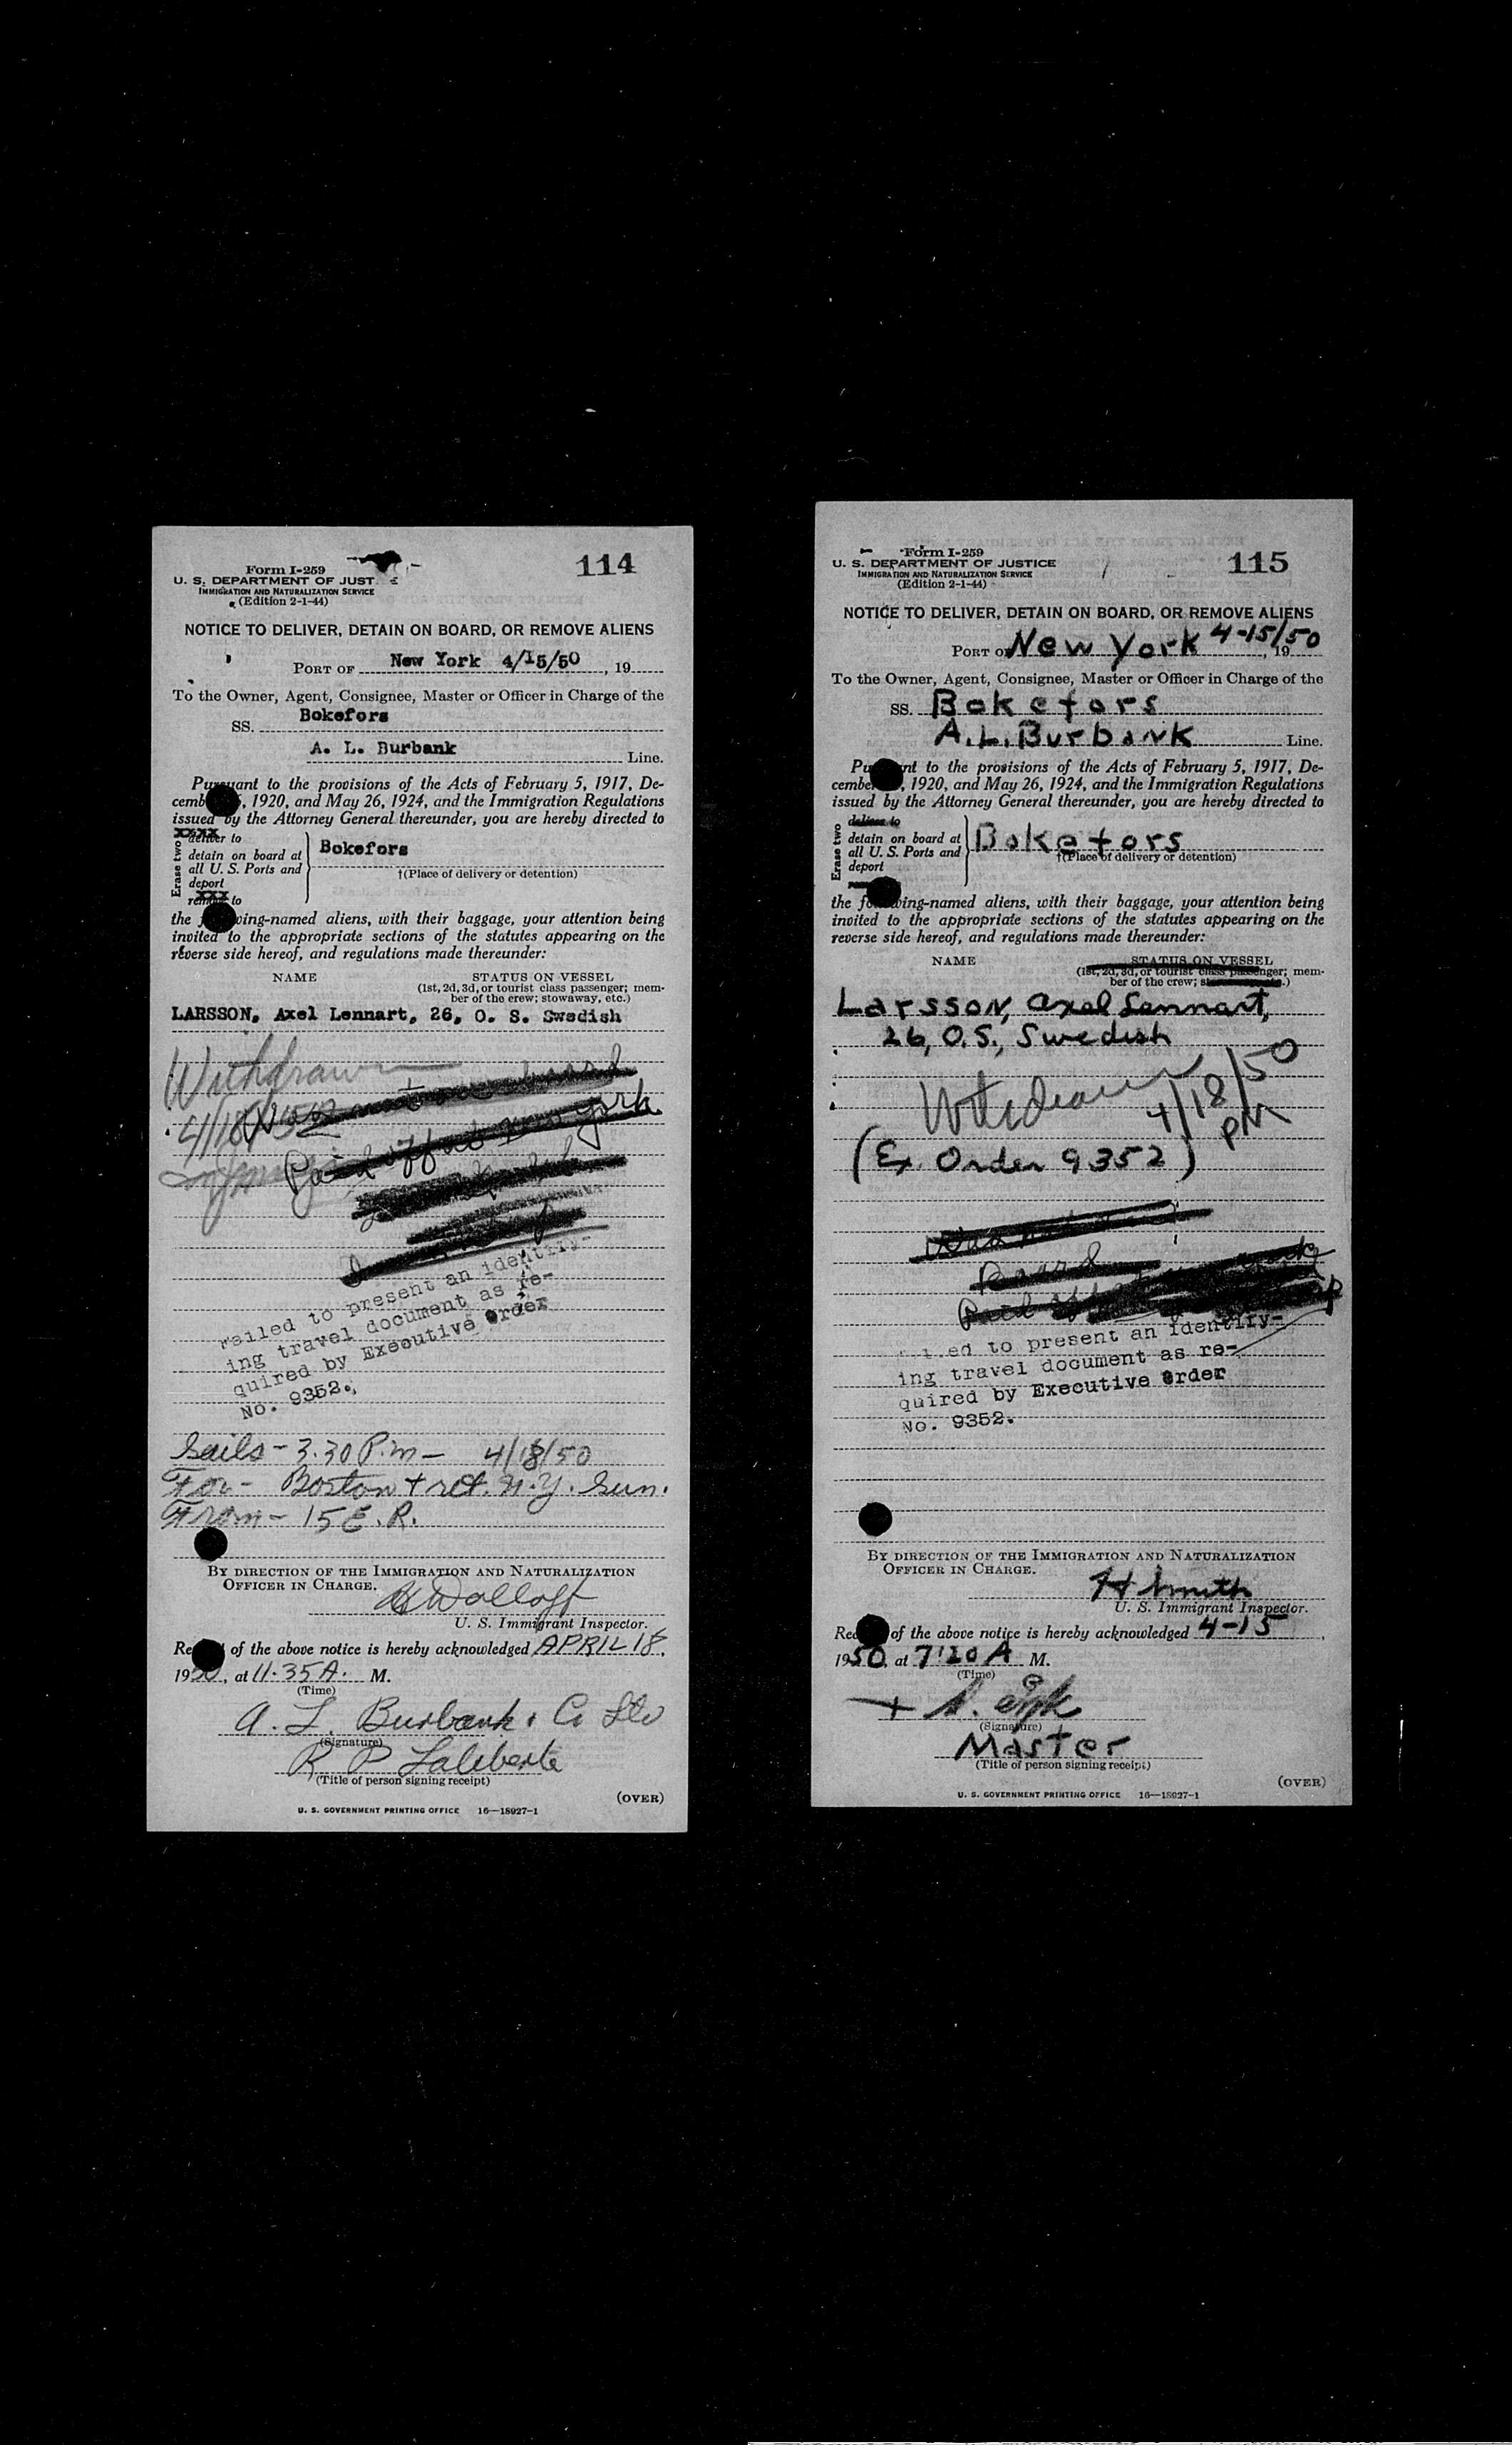 Form I-259
U. S. DEPARTMENT OF JUST
IMMIGRATION AND NATURALIZATION SERVICE
(Edition 2-1-44)
114
NOTICE TO DELIVER, DETAIN ON BOARD, OR REMOVE ALIENS
PORT OF New York 4/15/50, 19
To the Owner, Agent, Consignee, Master or Officer in Charge of the
SS. Bokefors
A. L. Burbank Line.
Pursuant to the provisions of the Acts of February 5, 1917, De-
cemb , 1920, and May 26, 1924, and the Immigration Regulations
issued by the Attorney General thereunder, you are hereby directed to
Erase two
deliver to
detain on board at
all U. S. Ports and
deport
remove to
Bokefors
†(Place of delivery or detention)
the f wing-named aliens, with their baggage, your attention being
invited to the appropriate sections of the statutes appearing on the
reverse side hereof, and regulations made thereunder:
NAME STATUS ON VESSEL
(1st, 2d, 3d, or tourist class passenger; mem-
ber of the crew; stowaway, etc.)
LARSSON, Axel Lennart, 26, O. S. Swedish
Withdrawn
4/18/50
Paid off at New York
Failed to present an identify-
ing travel document as re-
quired by Executive Order
No. 9352.
Sails - 3.30 P.m - 4/18/50
For - Boston + ret. N.Y. Sun.
From - 15 E. R.
BY DIRECTION OF THE IMMIGRATION AND NATURALIZATION
OFFICER IN CHARGE.
U. S. Immigrant Inspector.
Re of the above notice is hereby acknowledged APRIL 18,
1950, at 11.35 A. M.
(Time)
A. L. Burbank & Co Ltd
(Signature)
R P Laliberte
(Title of person signing receipt)
(OVER)
U. S. GOVERNMENT PRINTING OFFICE 16—18927-1
Form I-259
U. S. DEPARTMENT OF JUSTICE
IMMIGRATION AND NATURALIZATION SERVICE
(Edition 2-1-44)
115
NOTICE TO DELIVER, DETAIN ON BOARD, OR REMOVE ALIENS
PORT OF New York 4-15/50, 19
To the Owner, Agent, Consignee, Master or Officer in Charge of the
SS. Bokefors
A. L. Burbank Line.
Pu nt to the provisions of the Acts of February 5, 1917, De-
cembe , 1920, and May 26, 1924, and the Immigration Regulations
issued by the Attorney General thereunder, you are hereby directed to
Erase two
deliver to
detain on board at
all U. S. Ports and
deport
Bokefors
†(Place of delivery or detention)
the fo wing-named aliens, with their baggage, your attention being
invited to the appropriate sections of the statutes appearing on the
reverse side hereof, and regulations made thereunder:
NAME STATUS ON VESSEL
(1st, 2d, 3d, or tourist class passenger; mem-
ber of the crew; stowaway, etc.)
Larsson, Axel Lennart,
26, O.S., Swedish
Withdrawn 4/18/50
PM
(Ex. Order 9352)
Board
ed to present an identify-
ing travel document as re-
quired by Executive Order
No. 9352.
BY DIRECTION OF THE IMMIGRATION AND NATURALIZATION
OFFICER IN CHARGE.
H Smith
U. S. Immigrant Inspector.
Rec of the above notice is hereby acknowledged 4-15,
1950, at 7:20 A M.
(Time)
(Signature)
Master
(Title of person signing receipt)
(OVER)
U. S. GOVERNMENT PRINTING OFFICE 16—18927-1